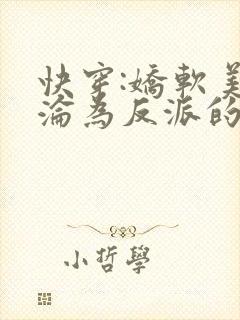 快穿:嬌軟美
淪為反派的
小哲學